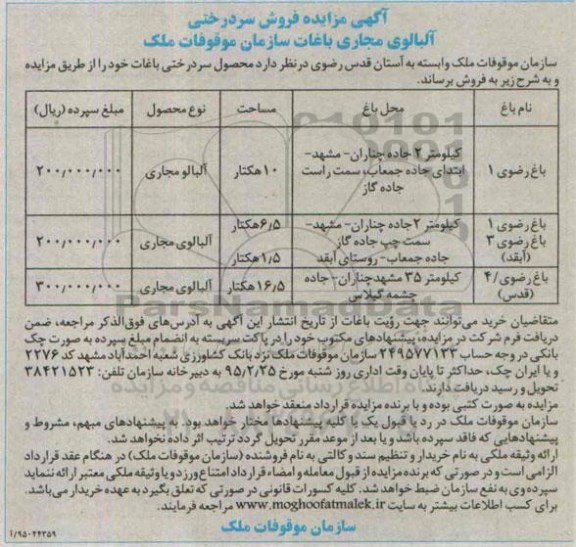 آگهی مزایده فروش سردرختی
آلبالوی مجاری باغات سازمان موقوفات ملک
سازمان موقوفات ملک وابسته به آستان قدس رضوی در نظر دارد محصول سردرختی باغات خود را از طریق مزایده
و به شرح زیر به فروش برساند.
نام باغ محل باغ مساحت نوع محصول مبلغ سپرده (ریال)
باغ رضوی ۱ کیلومتر ۲ جاده چناران- مشهد- ابتدای جاده جمعاب، سمت راست جاده گاز ۱۰ هکتار آلبالو مجاری ۲۰۰,۰۰۰,۰۰۰
باغ رضوی ۱ کیلومتر ۲ جاده چناران- مشهد- سمت چپ جاده گاز ۶٫۵ هکتار آلبالوی مجاری ۲۰۰,۰۰۰,۰۰۰
باغ رضوی ۳ (آبقد) جاده جمعاب- روستای آبقد ۱٫۵ هکتار
باغ رضوی/۴ (قدس) کیلومتر ۳۵ مشهد چناران- جاده چشمه گیلاس ۱۶٫۵ هکتار آلبالوی مجاری ۳۰۰,۰۰۰,۰۰۰
متقاضیان خرید می‌توانند جهت رؤیت باغات از تاریخ انتشار این آگهی به آدرس‌های فوق‌الذکر مراجعه، ضمن
دریافت فرم شرکت در مزایده، پیشنهادهای مکتوب خود را در پاکت سربسته به انضمام مبلغ سپرده به صورت چک
بانکی در وجه حساب ۲۴۹۵۷۷۱۳۳ سازمان موقوفات ملک نزد بانک کشاورزی شعبه احمدآباد مشهد کد ۲۲۷۶
و یا ایران چک، حداکثر تا پایان وقت اداری روز شنبه مورخ ۹۵/۲/۲۵ به دبیرخانه سازمان تلفن: ۳۸۴۲۱۵۲۳
تحویل و رسید دریافت دارند.
مزایده به صورت کتبی بوده و با برنده مزایده قرارداد منعقد خواهد شد.
سازمان موقوفات ملک در رد یا قبول یک یا کلیه پیشنهادها مختار خواهد بود. به پیشنهادهای مبهم، مشروط و
پیشنهادهایی که فاقد سپرده باشد و یا بعد از موعد مقرر تحویل گردد ترتیب اثر داده نخواهد شد.
ارائه وثیقه ملکی به نام خریدار و تنظیم سند وکالتی به نام فروشنده (سازمان موقوفات ملک) در هنگام عقد قرارداد
الزامی است و در صورتی که برنده مزایده از قبول معامله و امضاء قرارداد امتناع ورزد و یا وثیقه ملکی معتبر ارائه ننماید
سپرده وی به نفع سازمان ضبط خواهد شد. کلیه کسورات قانونی در صورتی که تعلق بگیرد به عهده خریدار می‌باشد.
برای کسب اطلاعات بیشتر به سایت www.moghoofatmalek.ir مراجعه فرمایند.
سازمان موقوفات ملک
۱/۹۵۰۲۴۳۵۹
ParsNamadData